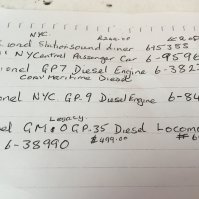 NYC.
ional Stationsound diner 615355
NYCentral Passenger Car 6-9596
ional GP7 Diesel Engine 6-382
Diesel
onel NYC. GP.9 Diesel Engine 6-84
Legacy.
el GM&O G.P.35 Diesel Locomo
6-38990 $499.00